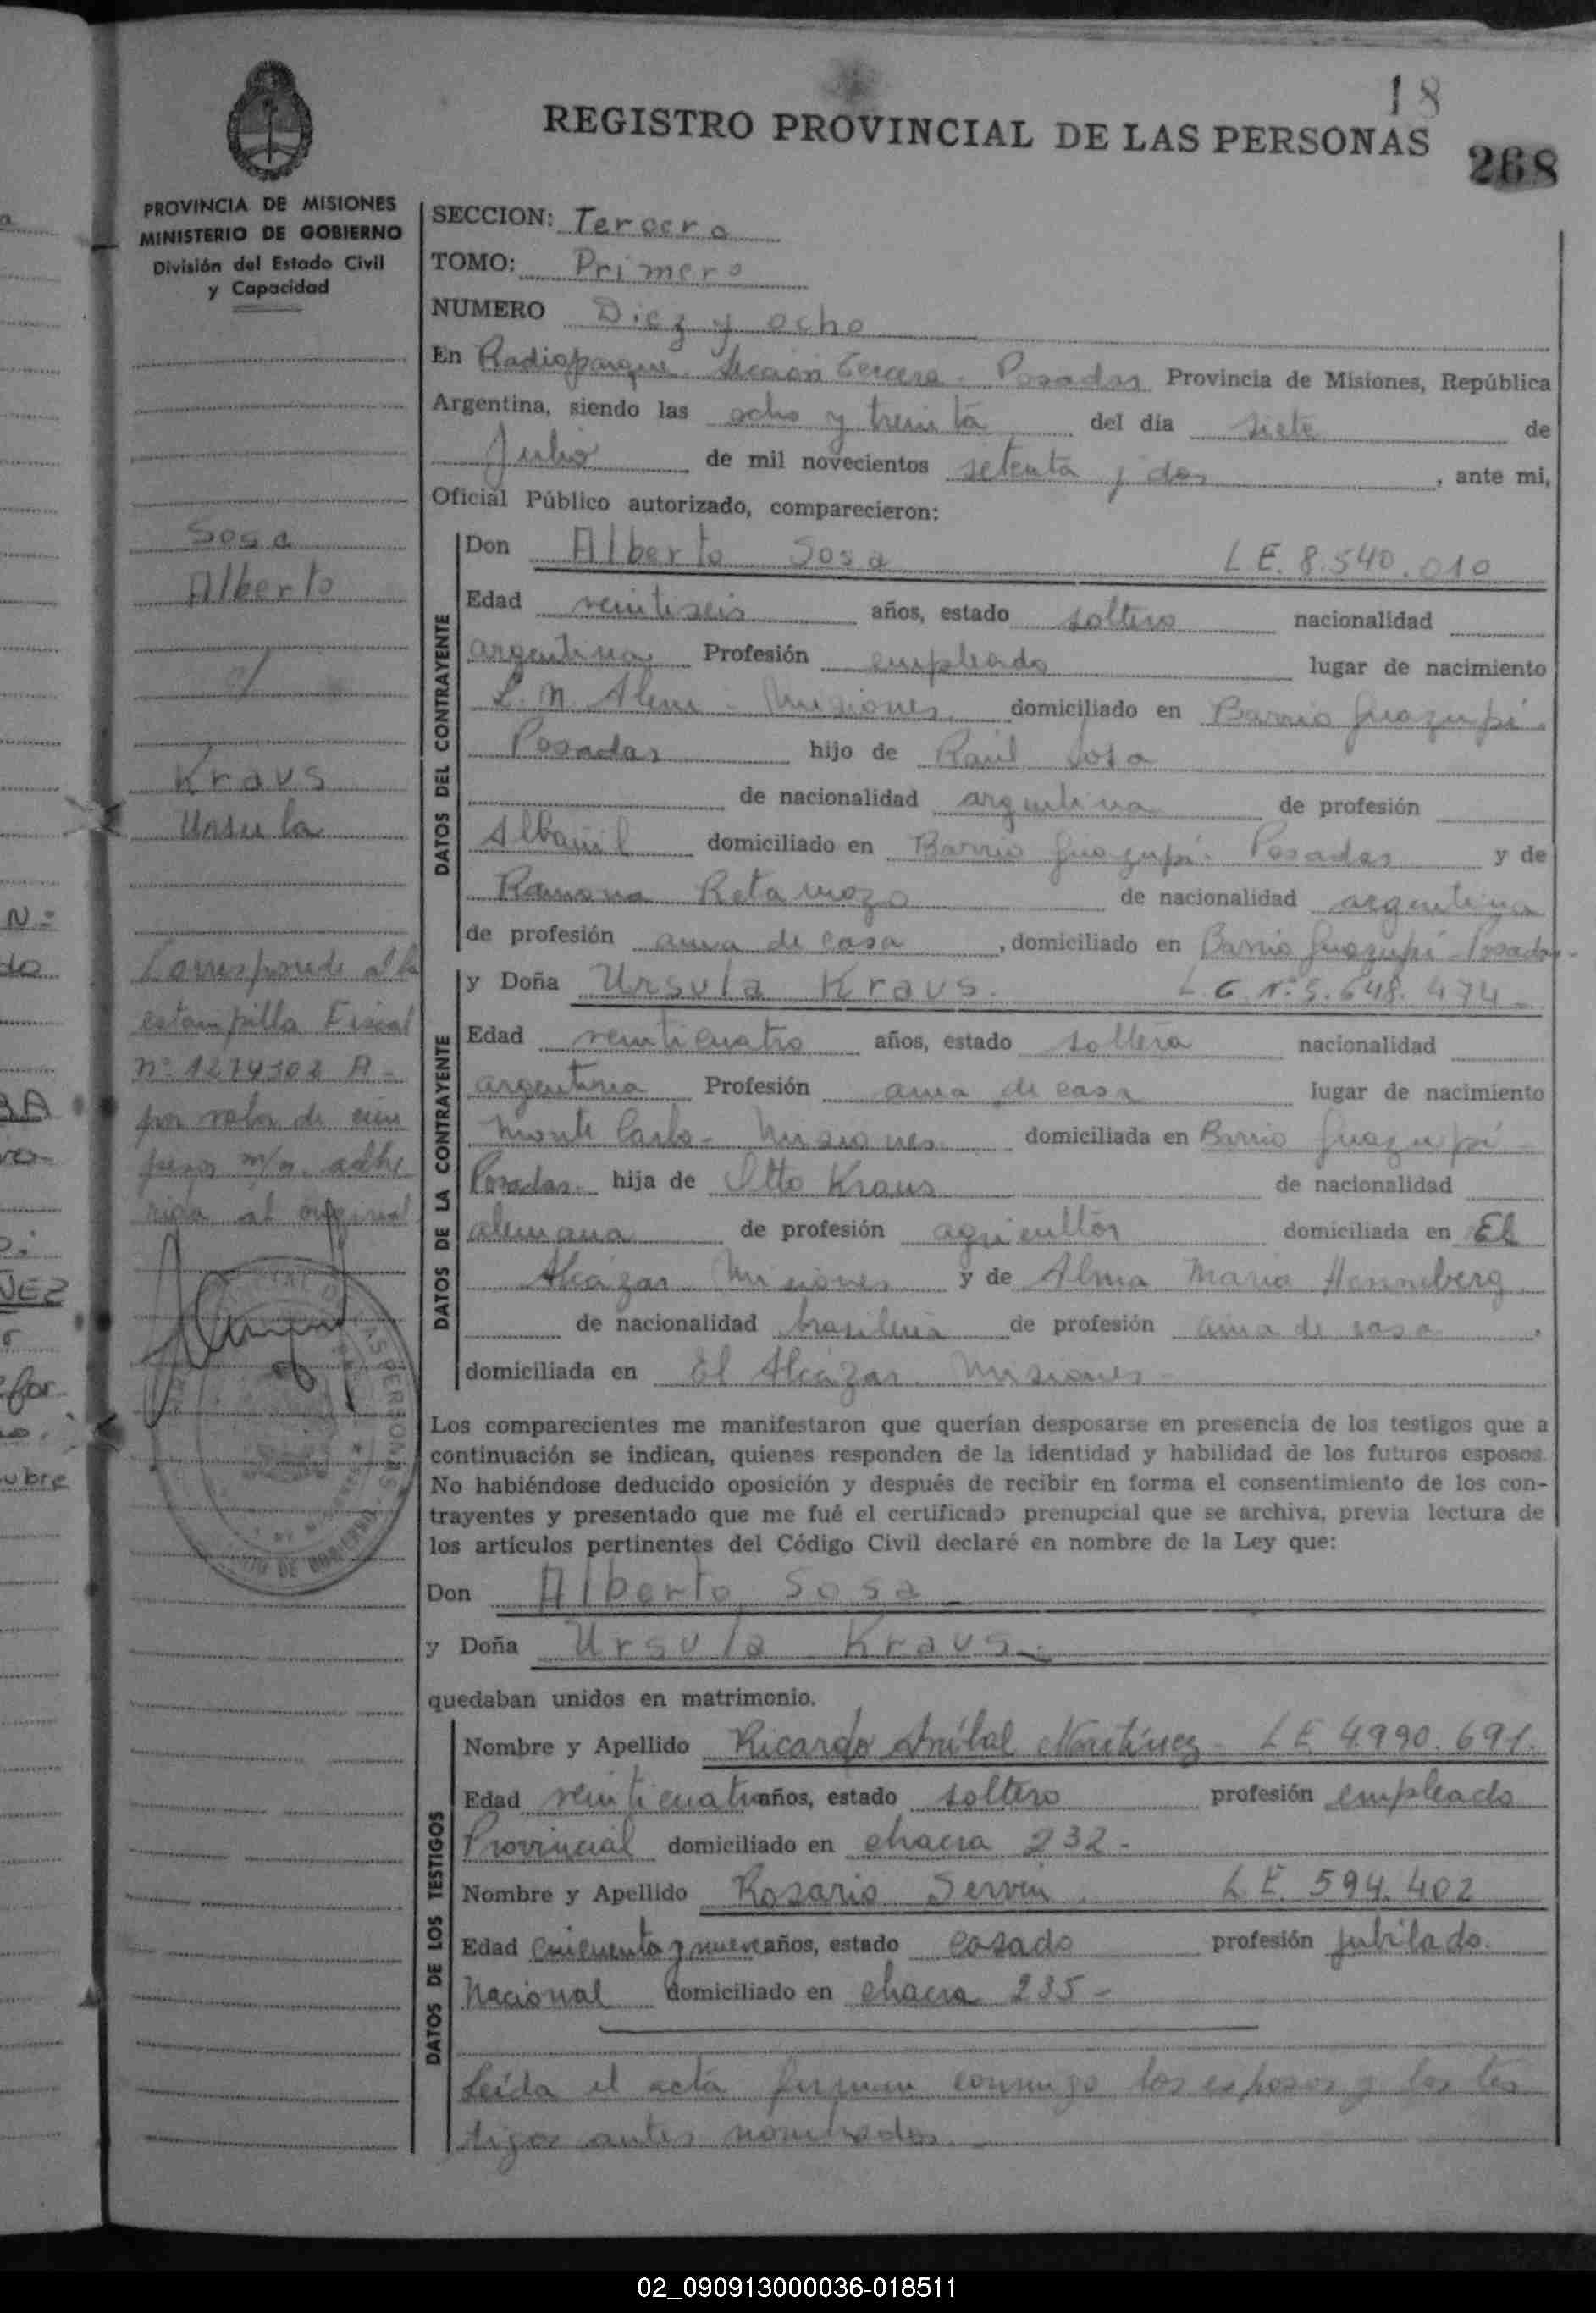 18
REGISTRO PROVINCIAL DE LAS PERSONAS
268
PROVINCIA DE MISIONES
MINISTERIO DE GOBIERNO
División del Estado Civil
y Capacidad
SECCION: Tercera
TOMO: Primero
NUMERO Diez y ocho
En Radioparque Sección Tercera - Posadas Provincia de Misiones, República
Argentina, siendo las ocho y treinta del día siete de
Julio de mil novecientos setenta y dos, ante mi,
Oficial Público autorizado, comparecieron:
Sosa
Alberto
Kraus
Ursula
Corresponde a la
estampilla Fiscal
nº 1274302 A-
por valor de cien
pesos m/n. adhe
rida al original
DATOS DEL CONTRAYENTE
Don Alberto Sosa L E. 8.540.010
Edad veintiseis años, estado soltero nacionalidad
argentina Profesión empleado lugar de nacimiento
L. N. Alem - Misiones domiciliado en Barrio Guazupí.
Posadas hijo de Raúl Sosa
de nacionalidad argentina de profesión
Albañil domiciliado en Barrio Guazupí. Posadas y de
Ramona Retamozo de nacionalidad argentina
de profesión ama de casa, domiciliado en Barrio Guazupí - Posadas-
DATOS DE LA CONTRAYENTE
y Doña Ursula Kraus. L. C. Nº 5.648.474-
Edad veinticuatro años, estado soltera nacionalidad
argentina Profesión ama de casa lugar de nacimiento
Monte Carlo - Misiones domiciliada en Barrio Guazupí
Posadas. hija de Otto Kraus de nacionalidad
alemana de profesión agricultor domiciliada en El
Alcázar Misiones y de Alma Maria Henneberg
de nacionalidad brasileña de profesión ama de casa,
domiciliada en El Alcázar Misiones-
Los comparecientes me manifestaron que querían desposarse en presencia de los testigos que a
continuación se indican, quienes responden de la identidad y habilidad de los futuros esposos.
No habiéndose deducido oposición y después de recibir en forma el consentimiento de los con-
trayentes y presentado que me fué el certificado prenupcial que se archiva, previa lectura de
los artículos pertinentes del Código Civil declaré en nombre de la Ley que:
Don Alberto Sosa
y Doña Ursula Kraus
quedaban unidos en matrimonio.
DATOS DE LOS TESTIGOS
Nombre y Apellido Ricardo Aníbal Martínez - L E 4.990.691.
Edad veinticuatro años, estado soltero profesión empleado
Provincial domiciliado en chacra 232-
Nombre y Apellido Rosario Servin L. E. 594.402
Edad cincuenta y nueve años, estado casado profesión jubilado.
Nacional domiciliado en chacra 235-
Leída el acta firman conmigo los esposos y los tes
tigos antes nombrados.-
02_090913000036-018511